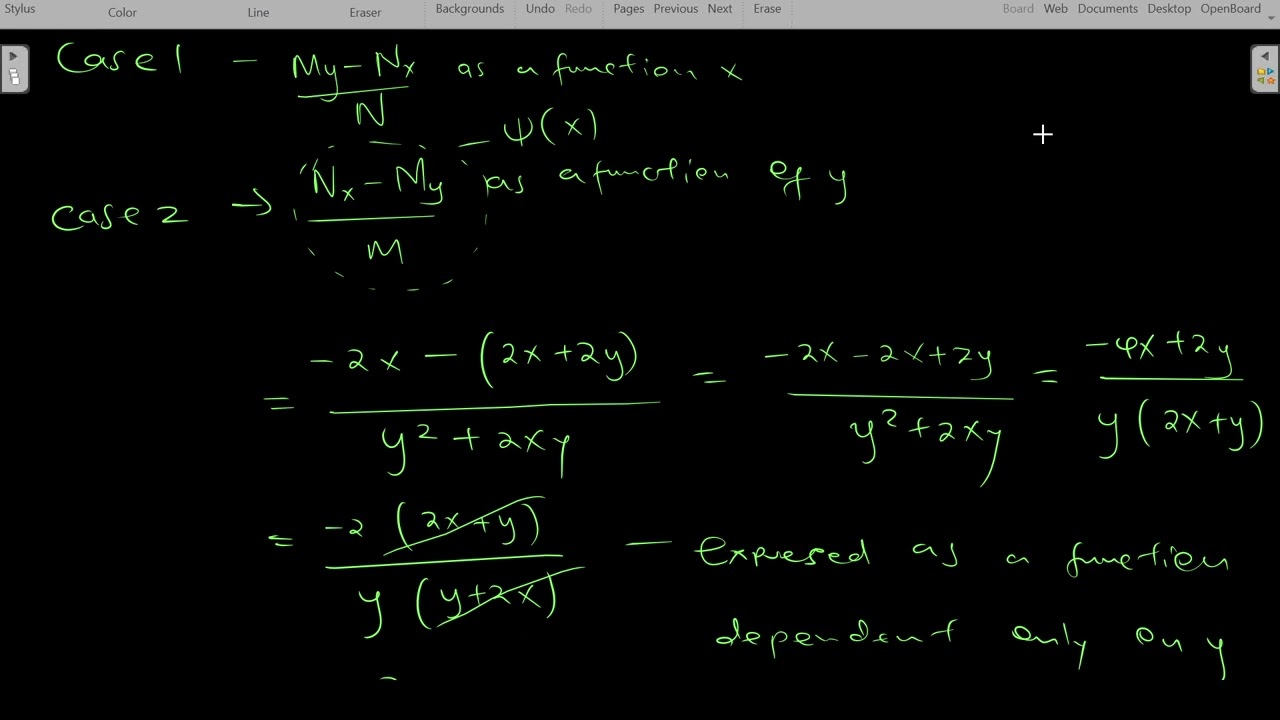 Stylus Color Line Eraser Backgrounds Undo Redo Pages Previous Next Erase Board Web Documents Desktop OpenBoard
Case 1 - (My - Nx)/N as a function x
- ψ(x)
Case 2 → (Nx - My)/M as a function of y
= (-2x - (2x+2y))/(y² + 2xy) = (-2x - 2x + 2y)/(y² + 2xy) = (-4x + 2y)/(y(2x+y))
= (-2(2x+y))/(y(y+2x)) - Expresed as a function
dependent only on y